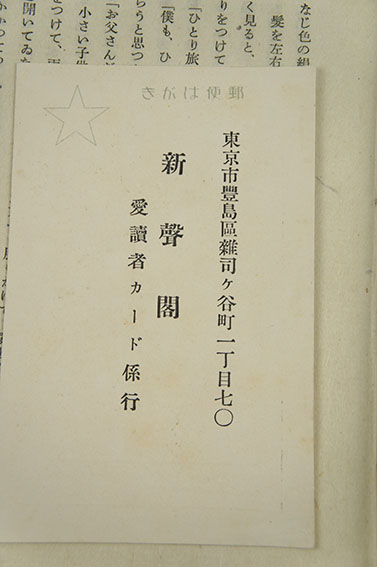 なじ色の絹
髪を左右
く見ると、
りをつけて
「ひとり旅
「僕も、ひ
らうと思つ
「お父さん
小さい子供
をつけて、
開いてゐた
郵便はがき
東京市豐島區雜司ヶ谷町一丁目七〇
新聲閣
愛讀者カード係行